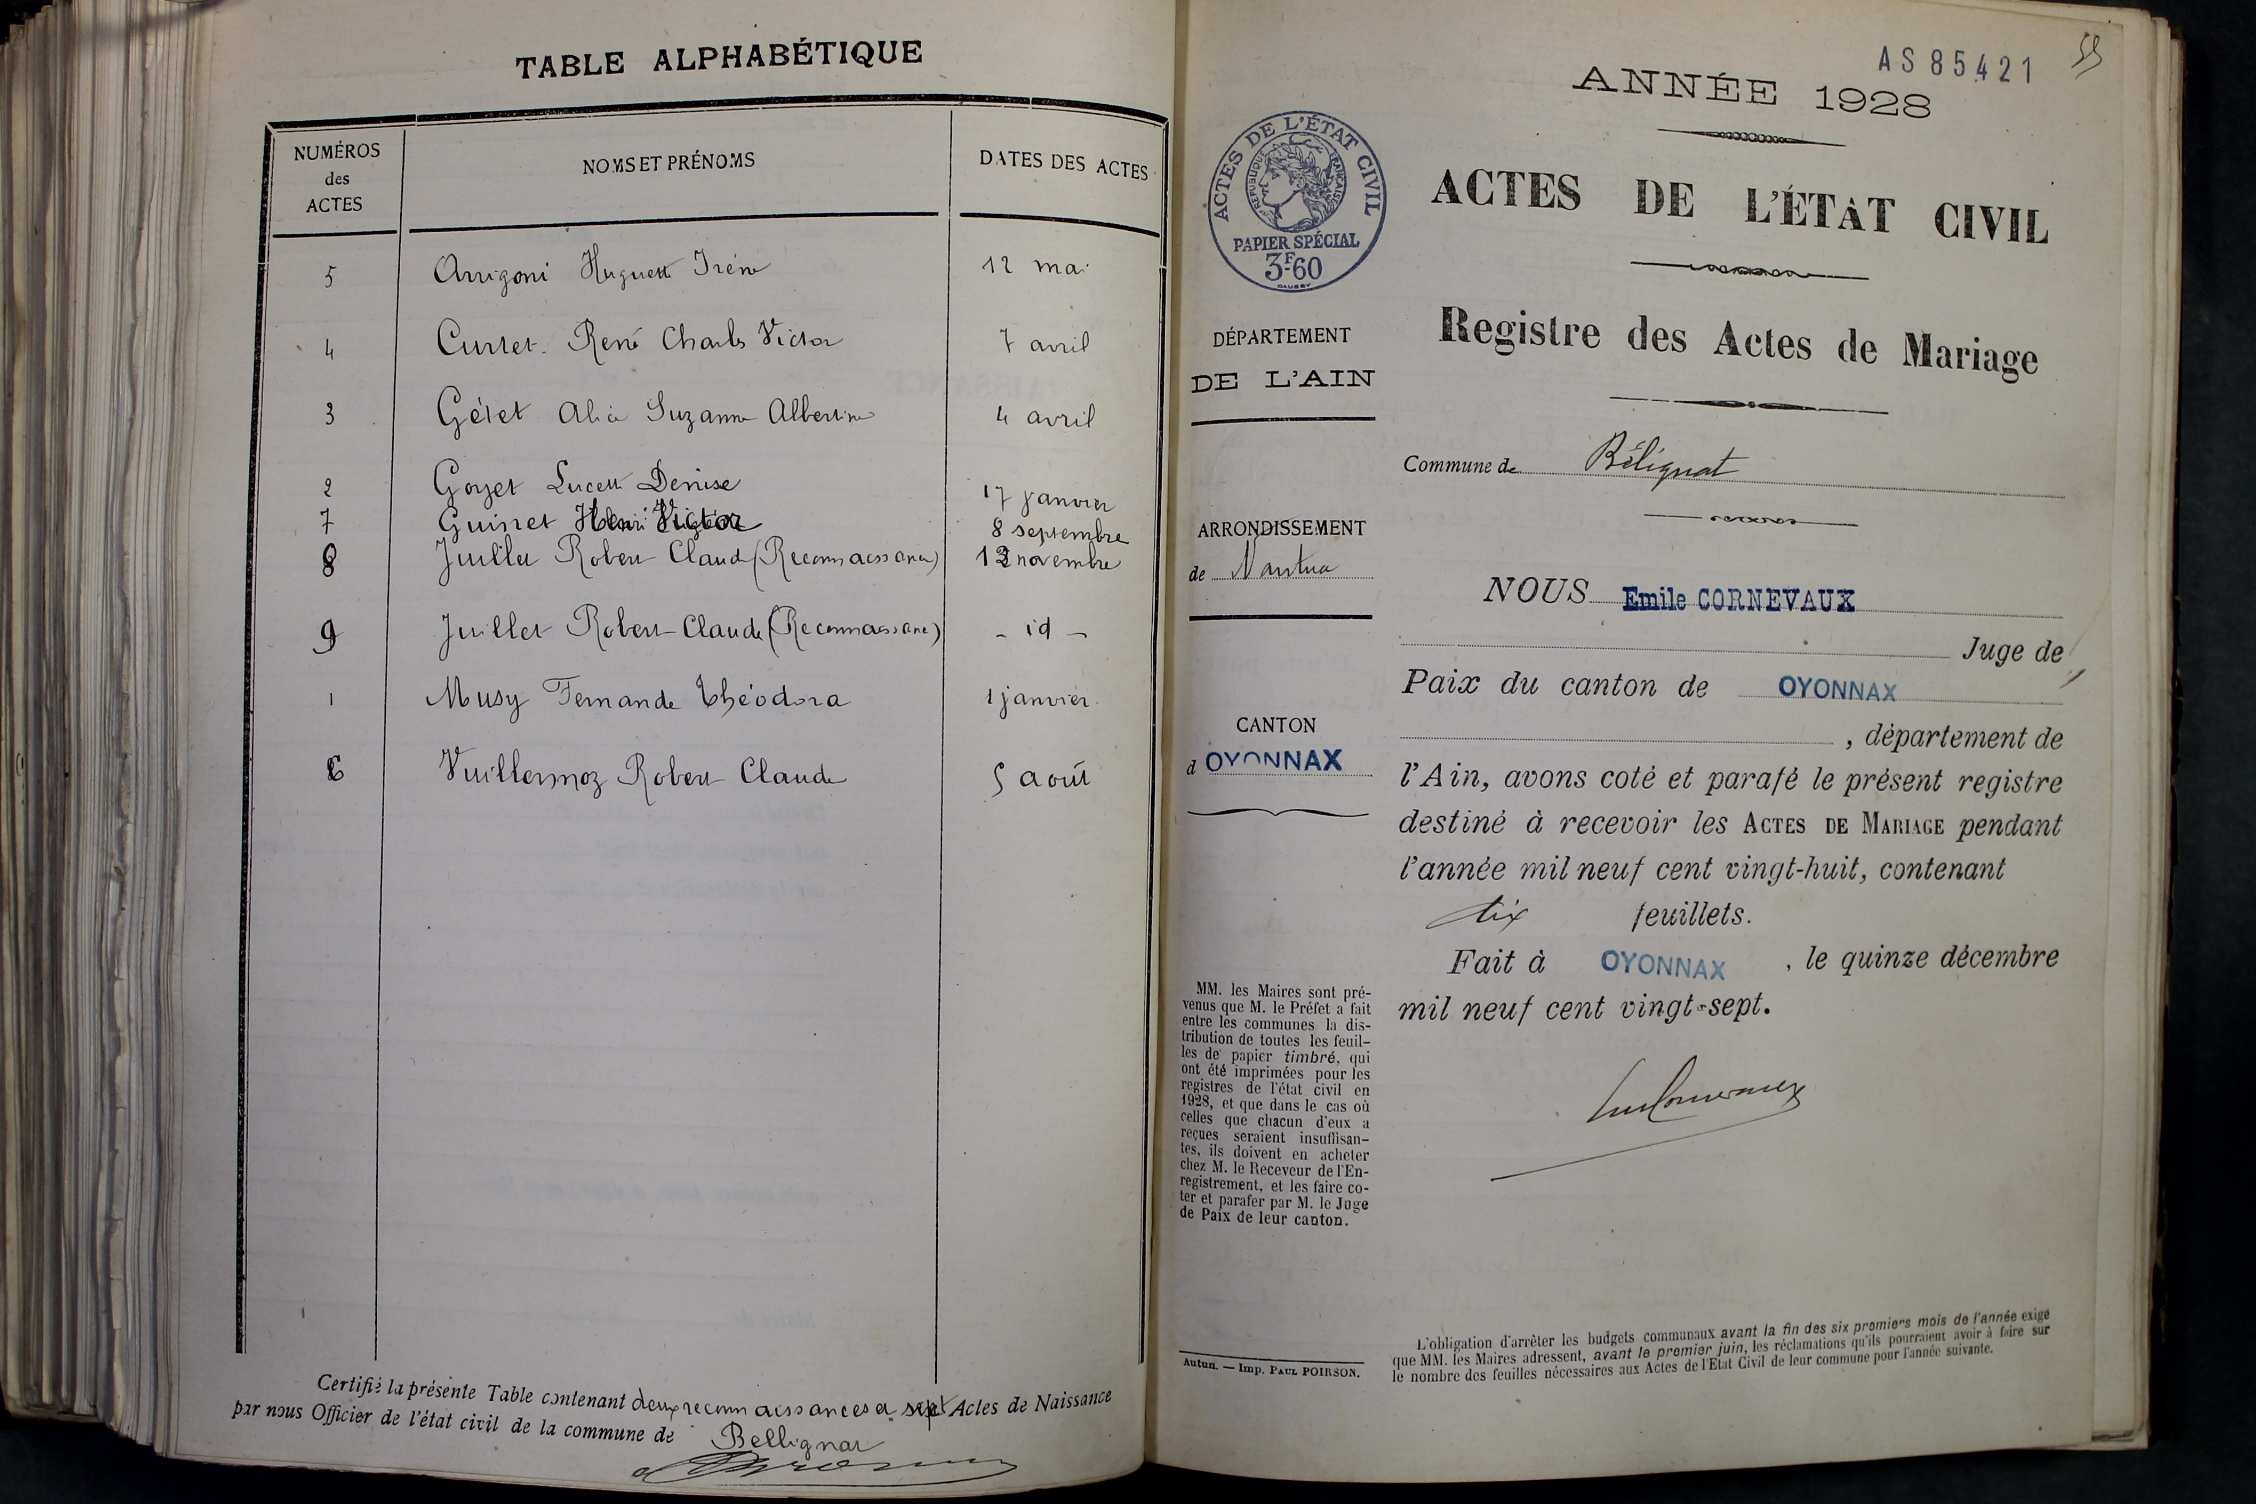 TABLE ALPHABÉTIQUE
NUMÉROS des ACTES
NOMS ET PRÉNOMS
DATES DES ACTES
5 Arrigoni Huguette Irène 12 mai
4 Curtet René Charles Victor 7 avril
3 Géret Alice Suzanne Albertine 4 avril
2 Goyet Lucette Denise 17 janvier
7 Guinet Henri Victor 8 septembre
8 Juillet Robert Claude (Reconnaissance) 12 novembre
9 Juillet Robert Claude (Reconnaissance) - id -
1 Musy Fernande Théodora 1 janvier
6 Vuillermoz Robert Claude 5 août
Certifié la présente Table contenant deux reconnaissances et sept Actes de Naissance
par nous Officier de l'état civil de la commune de Bellignat
AS 85421
ANNÉE 1928
ACTES DE L'ÉTAT CIVIL
RÉPUBLIQUE FRANÇAISE
PAPIER SPÉCIAL
3F60
DAUSSY
ACTES DE L'ÉTAT CIVIL
Registre des Actes de Mariage
DÉPARTEMENT
DE L'AIN
Commune de Bélignat
ARRONDISSEMENT
de Nantua
CANTON
d OYONNAX
NOUS Emile CORNEVAUX
Juge de
Paix du canton de OYONNAX
, département de
l'Ain, avons coté et parafé le présent registre
destiné à recevoir les ACTES DE MARIAGE pendant
l'année mil neuf cent vingt-huit, contenant
dix feuillets.
Fait à OYONNAX, le quinze décembre
mil neuf cent vingt-sept.
MM. les Maires sont pré-
venus que M. le Préfet a fait
entre les communes la dis-
tribution de toutes les feuil-
les de papier timbré, qui
ont été imprimées pour les
registres de l'état civil en
1928, et que dans le cas où
celles que chacun d'eux a
reçues seraient insuffisan-
tes, ils doivent en acheter
chez M. le Receveur de l'En-
registrement, et les faire co-
ter et parafer par M. le Juge
de Paix de leur canton.
Autun. — Imp. PAUL POIRSON.
L'obligation d'arrêter les budgets communaux avant la fin des six premiers mois de l'année exige
que MM. les Maires adressent, avant le premier juin, les réclamations qu'ils pourraient avoir à faire sur
le nombre des feuilles nécessaires aux Actes de l'État Civil de leur commune pour l'année suivante.